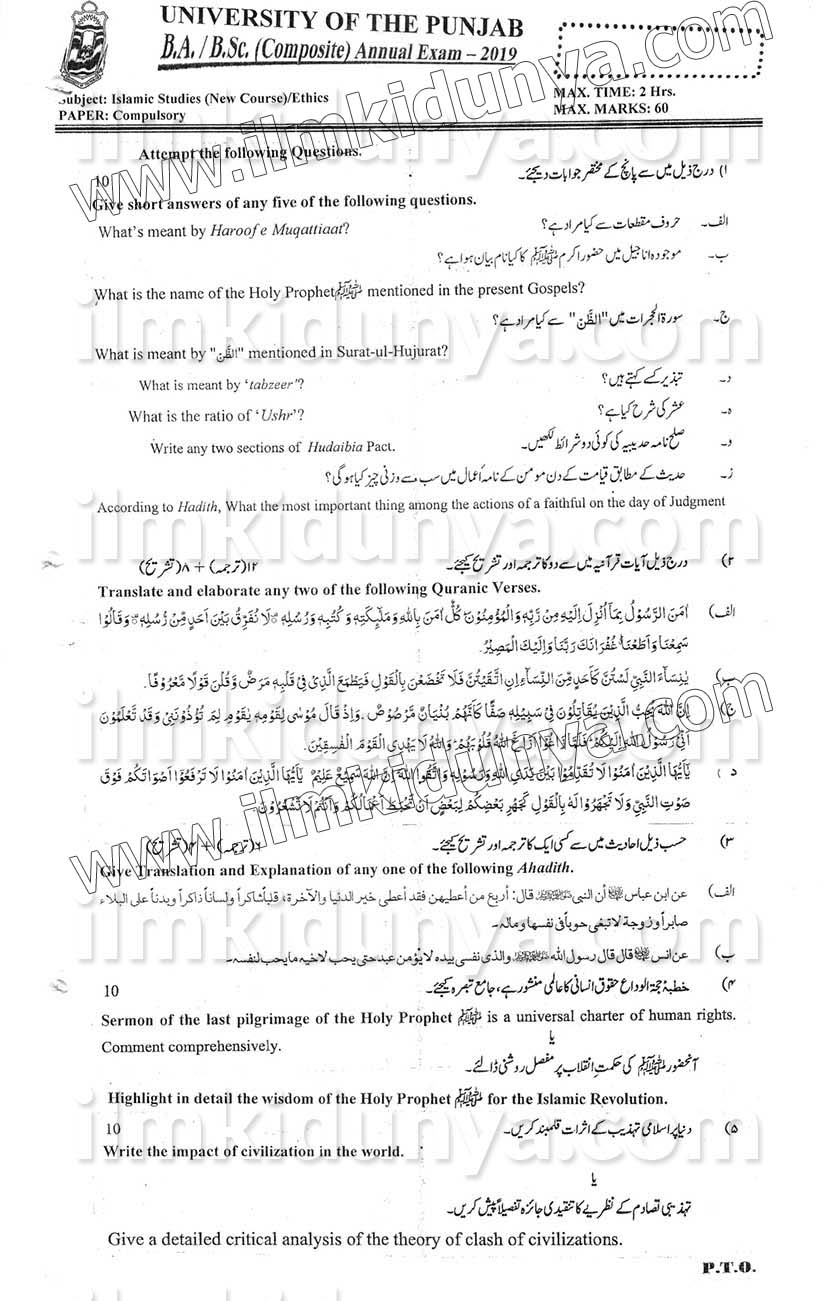 UNIVERSITY OF THE PUNJAB
B.A. / B.Sc. (Composite) Annual Exam – 2019
Subject: Islamic Studies (New Course)/Ethics
PAPER: Compulsory
MAX. TIME: 2 Hrs.
MAX. MARKS: 60
Attempt the following Questions.
۱) درج ذیل میں سے پانچ کے مختصر جوابات دیجئے۔
10
Give short answers of any five of the following questions.
What's meant by Haroof e Muqattiaat? الف۔ حروف مقطعات سے کیا مراد ہے؟
ب۔ موجودہ اناجیل میں حضور اکرم ﷺ کا کیا نام بیان ہوا ہے؟
What is the name of the Holy Prophet ﷺ mentioned in the present Gospels?
ج۔ سورۃ الحجرات میں "الظَّنّ" سے کیا مراد ہے؟
What is meant by "الظَّنّ" mentioned in Surat-ul-Hujurat?
What is meant by 'tabzeer'? د۔ تبذیر کسے کہتے ہیں؟
What is the ratio of 'Ushr'? ہ۔ عشر کی شرح کیا ہے؟
Write any two sections of Hudaibia Pact. و۔ صلح نامہ حدیبیہ کی کوئی دو شرائط لکھیں۔
ز۔ حدیث کے مطابق قیامت کے دن مومن کے نامہ اعمال میں سب سے وزنی چیز کیا ہوگی؟
According to Hadith, What the most important thing among the actions of a faithful on the day of Judgment
۲) درج ذیل آیات قرآنیہ میں سے دو کا ترجمہ اور تشریح کیجئے۔ ۱۲(ترجمہ) + ۸(تشریح)
Translate and elaborate any two of the following Quranic Verses.
الف) اٰمَنَ الرَّسُوْلُ بِمَآ اُنْزِلَ اِلَيْهِ مِنْ رَّبِّهٖ وَالْمُؤْمِنُوْنَ كُلٌّ اٰمَنَ بِاللهِ وَمَلٰٓئِكَتِهٖ وَكُتُبِهٖ وَرُسُلِهٖ لَا نُفَرِّقُ بَيْنَ اَحَدٍ مِّنْ رُّسُلِهٖ وَقَالُوْا
سَمِعْنَا وَاَطَعْنَا غُفْرَانَكَ رَبَّنَا وَاِلَيْكَ الْمَصِيْرُ.
ب) يٰنِسَآءَ النَّبِيِّ لَسْتُنَّ كَاَحَدٍ مِّنَ النِّسَآءِ اِنِ اتَّقَيْتُنَّ فَلَا تَخْضَعْنَ بِالْقَوْلِ فَيَطْمَعَ الَّذِيْ فِيْ قَلْبِهٖ مَرَضٌ وَّقُلْنَ قَوْلًا مَّعْرُوْفًا.
ج) اِنَّ اللهَ يُحِبُّ الَّذِيْنَ يُقَاتِلُوْنَ فِيْ سَبِيْلِهٖ صَفًّا كَاَنَّهُمْ بُنْيَانٌ مَّرْصُوْصٌ. وَاِذْ قَالَ مُوْسٰى لِقَوْمِهٖ يٰقَوْمِ لِمَ تُؤْذُوْنَنِيْ وَقَدْ تَّعْلَمُوْنَ
اَنِّيْ رَسُوْلُ اللهِ اِلَيْكُمْ فَلَمَّا زَاغُوْٓا اَزَاغَ اللهُ قُلُوْبَهُمْ وَاللهُ لَا يَهْدِى الْقَوْمَ الْفٰسِقِيْنَ.
د) يٰٓاَيُّهَا الَّذِيْنَ اٰمَنُوْا لَا تُقَدِّمُوْا بَيْنَ يَدَيِ اللهِ وَرَسُوْلِهٖ وَاتَّقُوا اللهَ اِنَّ اللهَ سَمِيْعٌ عَلِيْمٌ يٰٓاَيُّهَا الَّذِيْنَ اٰمَنُوْا لَا تَرْفَعُوْٓا اَصْوَاتَكُمْ فَوْقَ
صَوْتِ النَّبِيِّ وَلَا تَجْهَرُوْا لَهٗ بِالْقَوْلِ كَجَهْرِ بَعْضِكُمْ لِبَعْضٍ اَنْ تَحْبَطَ اَعْمَالُكُمْ وَاَنْتُمْ لَا تَشْعُرُوْنَ.
۳) حسب ذیل احادیث میں سے کسی ایک کا ترجمہ اور تشریح کیجئے۔ (ترجمہ) + (تشریح)
Give Translation and Explanation of any one of the following Ahadith.
الف) عن ابن عباس أن النبی ﷺ قال: أربع من أعطیهن فقد أعطی خیر الدنیا والآخرة، قلباً شاکراً ولساناً ذاکراً وبدناً علی البلاء
صابراً وزوجة لا تبغی حوباً فی نفسها وماله۔
ب) عن انس قال قال رسول الله ﷺ والذی نفسی بیده لا یؤمن عبد حتی یحب لاخیه ما یحب لنفسه۔
10 ۴) خطبہ حجۃ الوداع حقوق انسانی کا عالمی منشور ہے، جامع تبصرہ کیجئے۔
Sermon of the last pilgrimage of the Holy Prophet ﷺ is a universal charter of human rights.
Comment comprehensively.
یا
آنحضور ﷺ کی حکمتِ انقلاب پر مفصل روشنی ڈالئے۔
Highlight in detail the wisdom of the Holy Prophet ﷺ for the Islamic Revolution.
10 ۵) دنیا پر اسلامی تہذیب کے اثرات قلمبند کریں۔
Write the impact of civilization in the world.
یا
تہذیبی تصادم کے نظریے کا تنقیدی جائزہ تفصیلاً پیش کریں۔
Give a detailed critical analysis of the theory of clash of civilizations.
P.T.O.
www.ilmkidunya.com
ilmkidunya.com